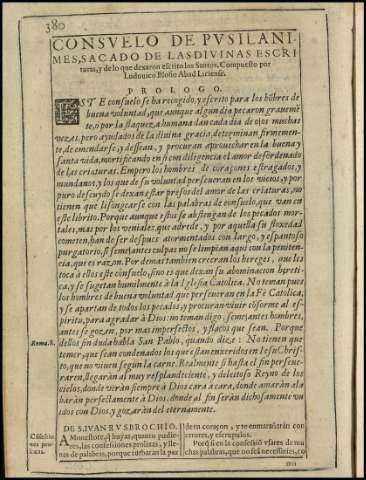 380
CONSVELO DE PVSILANI-
MES, SACADO DE LAS DIVINAS ESCRI
turas, y de lo que dexaron escrito los Santos. Compuesto por
Ludouico Blosio Abad Liciense.
PROLOGO.
ESTE consuelo se ha recogido, y escrito para los hõbres de
buena voluntad, que aunque algun dia pecaron grauemẽ
te, o por la flaqueza humana en cada dia de ojos muchas
vezas, pero ayudados de la diuina gracia, determinan firmemen-
te, de emendarse, y dessean, y procuran aprouechar en la buena y
santa vida, mortificando en si con diligencia el amor desordenado
de las criaturas. Empero los hombres de coraçones estragados, y
mundanos, y los que de su voluntad perseueran en los vicios, y por
puro descuydo se dexan estar presos del amor de las criaturas, no
tienen que lisongearse con las palabras de consuelo, que van en
este librito. Porque aunque estos se abstengan de los pecados mor-
tales, mas por los veniales, que adrede, y por aquella su floxedad
cometen, han de ser despues atormentados con largo, y espantoso
purgatorio, si semejantes culpas no se limpian aqui con la peniten-
cia, que es razon. Por demas tambien creeran los hereges, que les
toca à ellos este consuelo, sino es que dexan su abominacion hereti-
ca, y se sugetan humolmente à la Iglesia Catolica. No teman pues
los hombres de buena voluntad que perseueran en la Fè Catolica,
y se apartan de todos los pecados, y procuran viuir cõforme al es-
piritu, para agradar à Dios: no teman digo, semejantes hombres,
antes se gozen, por mas imperfectos, y flacos que sean. Porque
dellos sin duda habla San Pablo, quando dize: No tienen que
Roma. 8.
temer, que sean condenados los que estan enxeridos en Iesu Chris-
to, que no viuen segun la carne. Realmente si hasta el fin perseue-
raren, llegaràn al muy resplandeciente, y deleitoso Reyno de los
cielos, donde viràn siempre à Dios cara à cara, donde amaràn ala
baràn perfectamente à Dios, donde al fin seràn dichosamente vni
dos con Dios, y gozaràn del eternamente.
DE S. IVAN RVSBROCHIO.
Amonestote, q̃ huyas, quanto pudie-
res, las confessiones prolixas, y lle-
nas de palabras, porque turbaran la paz
de tu coraçon, y te enmarañaràn con
errores, y escrupulos.
Porq̃ si en la confessiõ vsares de mu
chas palabras, que no sea necessarias, co